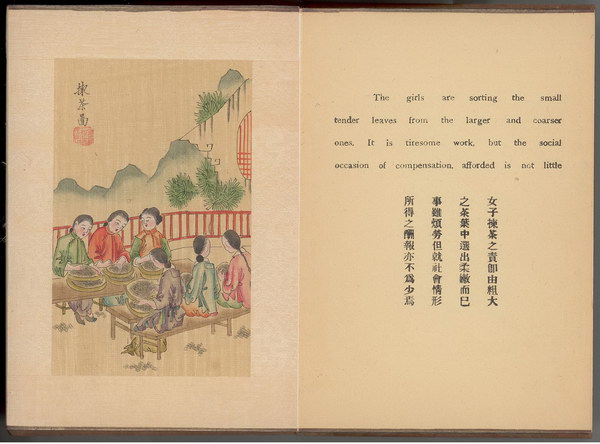 揀茶圖
The girls are sorting the small
tender leaves from the larger and coarser
ones. It is tiresome work, but the social
occasion of compensation, afforded is not little
女子揀茶之責卽由粗大
之茶葉中選出柔嫩而已
事雖煩勞但就社會情形
所得之酬報亦不爲少焉